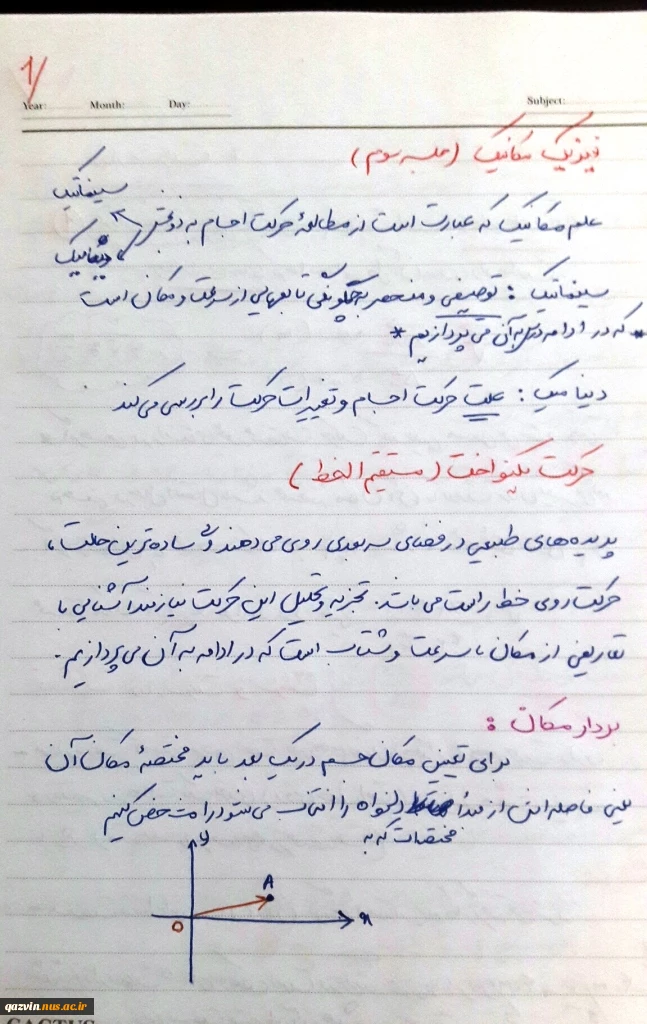 1/
Year: Month: Day: Subject:
فیزیک مکانیک (جلسه سوم)
سینماتیک
علم مکانیک که عبارت است از مطالعهٔ حرکت اجسام به دو بخش
دینامیک
سینماتیک : توصیفی و منحصر به چگونگی تابعهایی از سرعت و مکان است
* که در ادامه درس به آن می پردازیم *
دینامیک : علت حرکت اجسام و تغییرات حرکت را بررسی می کند
حرکت یکنواخت (مستقیم الخط)
پدیده های طبیعی در فضای سه بعدی روی می دهند و ساده ترین حالت،
حرکت روی خط راست می باشد. تجزیه و تحلیل این حرکت نیازمند آشنایی با
تعاریفی از مکان، سرعت و شتاب است که در ادامه به آن می پردازیم.
بردار مکان :
برای تعیین مکان جسم در یک بعد باید مختصهٔ مکان آن
یعنی فاصله اش از مبدأ دلخواه را انتخاب می شود را مشخص کنیم
مختصات که به
y
A
O x
qazvin.nus.ac.ir
CACTUS